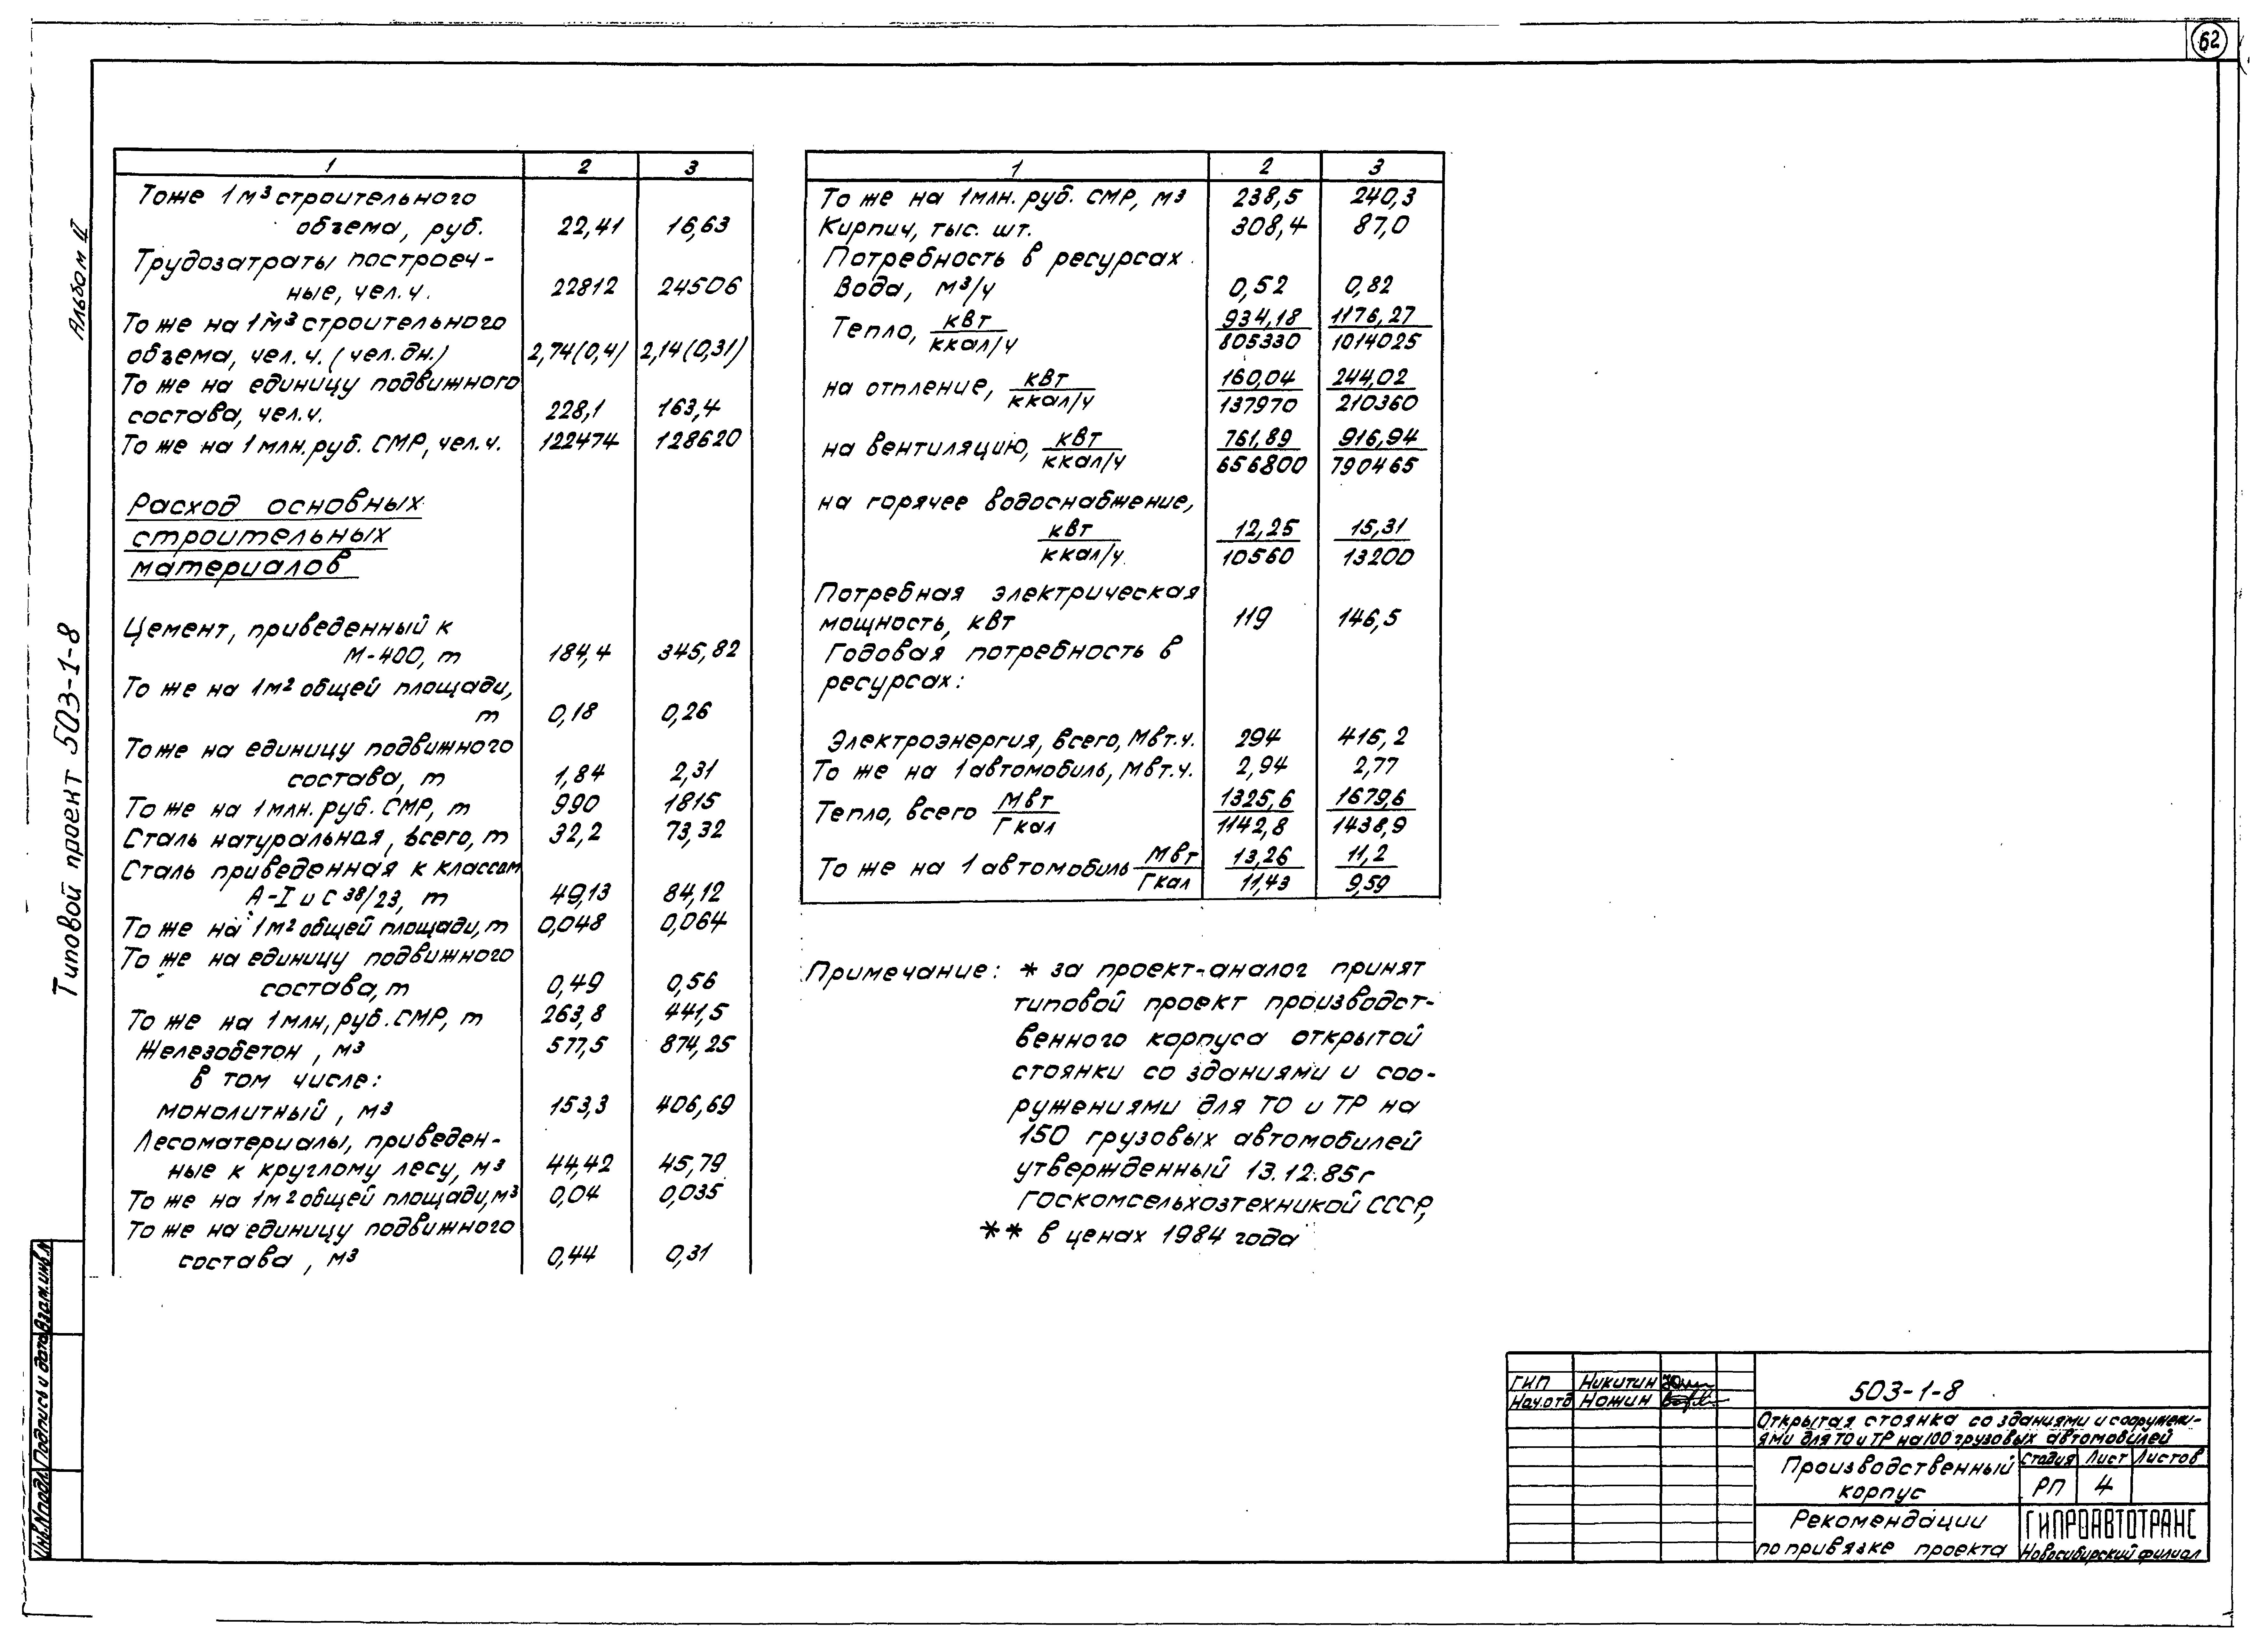 62
Альбом II
Типовой проект 503-1-8
1 2 3
Тоже 1м³ строительного
объема, руб. 22,41 16,63
Трудозатраты построеч-
ные, чел.ч. 22812 24506
То же на 1м³ строительного
объема, чел.ч. (чел.дн.) 2,74(0,4) 2,14(0,31)
То же на единицу подвижного
состава, чел.ч. 228,1 163,4
То же на 1 млн.руб. СМР, чел.ч. 122474 128620
Расход основных
строительных
материалов
Цемент, приведенный к
М-400, т 184,4 345,82
То же на 1м² общей площади,
т 0,18 0,26
Тоже на единицу подвижного
состава, т 1,84 2,31
То же на 1 млн. руб. СМР, т 990 1815
Сталь натуральная, всего, т 32,2 73,32
Сталь приведенная к классам
А-I и С 38/23, т 49,13 84,12
То же на 1м² общей площади, т 0,048 0,064
То же на единицу подвижного
состава, т 0,49 0,56
То же на 1 млн, руб. СМР, т 263,8 441,5
Железобетон, м³ 577,5 874,25
в том числе:
монолитный, м³ 153,3 406,69
Лесоматериалы, приведен-
ные к круглому лесу, м³ 44,42 45,79
То же на 1м² общей площади, м³ 0,04 0,035
То же на единицу подвижного
состава, м³ 0,44 0,31
1 2 3
То же на 1 млн. руб. СМР, м³ 238,5 240,3
Кирпич, тыс. шт. 308,4 87,0
Потребность в ресурсах
Вода, м³/ч 0,52 0,82
Тепло, квт/ккал/ч 934,18/805330 1176,27/1014025
на отпление, квт/ккал/ч 160,04/137970 244,02/210360
на вентиляцию, квт/ккал/ч 761,89/656800 916,94/790465
на горячее водоснабжение,
квт/ккал/ч 12,25/10560 15,31/13200
Потребная электрическая
мощность, квт 119 146,5
Годовая потребность в
ресурсах:
Электроэнергия, всего, Мвт.ч. 294 416,2
То же на 1 автомобиль, Мвт.ч. 2,94 2,77
Тепло, всего Мвт/Гкал 1325,6/1142,8 1679,6/1438,9
То же на 1 автомобиль Мвт/Гкал 13,26/11,43 11,2/9,59
Примечание: * за проект-аналог принят
типовой проект производст-
венного корпуса открытой
стоянки со зданиями и соо-
ружениями для ТО и ТР на
150 грузовых автомобилей
утвержденный 13.12.85г
Госкомсельхозтехникой СССР,
** в ценах 1984 года
ГИП Никитин
Нач.отд Ножин
503-1-8
Открытая стоянка со зданиями и сооружен-
иями для ТО и ТР на 100 грузовых автомобилей
Производственный
корпус
Стадия Лист Листов
РП 4
Рекомендации
по привязке проекта
ГИПРОАВТОТРАНС
Новосибирский филиал
Взам.инв.N
Подпись и дата
Инв.N подл.